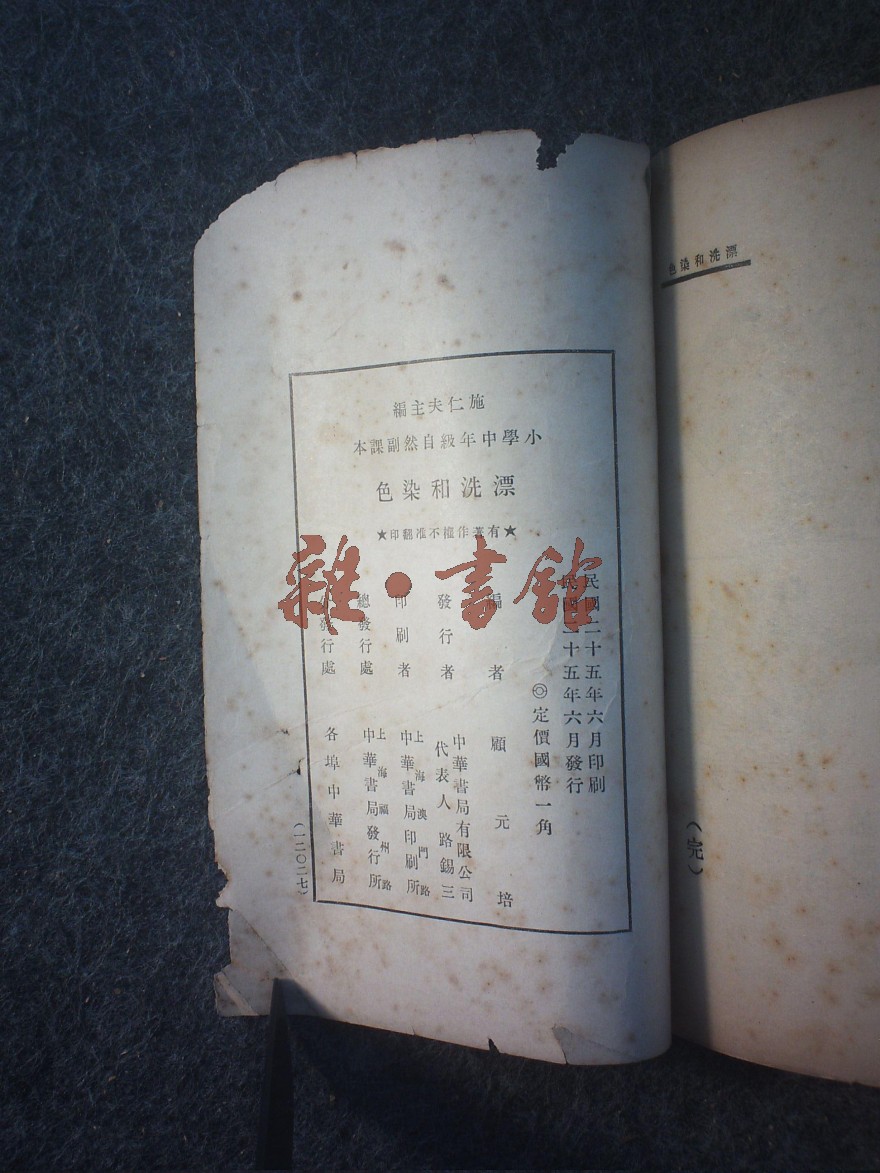 漂洗和染色
(完)
施仁夫主編
小學中年級自然副課本
漂洗和染色
★有著作權不准翻印★
民國二十五年六月印刷
民國二十五年六月發行
◎定價國幣一角
編者 顧元培
發行者 中華書局有限公司
代表人 路錫三
印刷者 上海澳門路
中華書局印刷所
總發行處 上海福州路
中華書局發行所
分發行處 各埠中華書局
(一二〇二七)
雜·書館